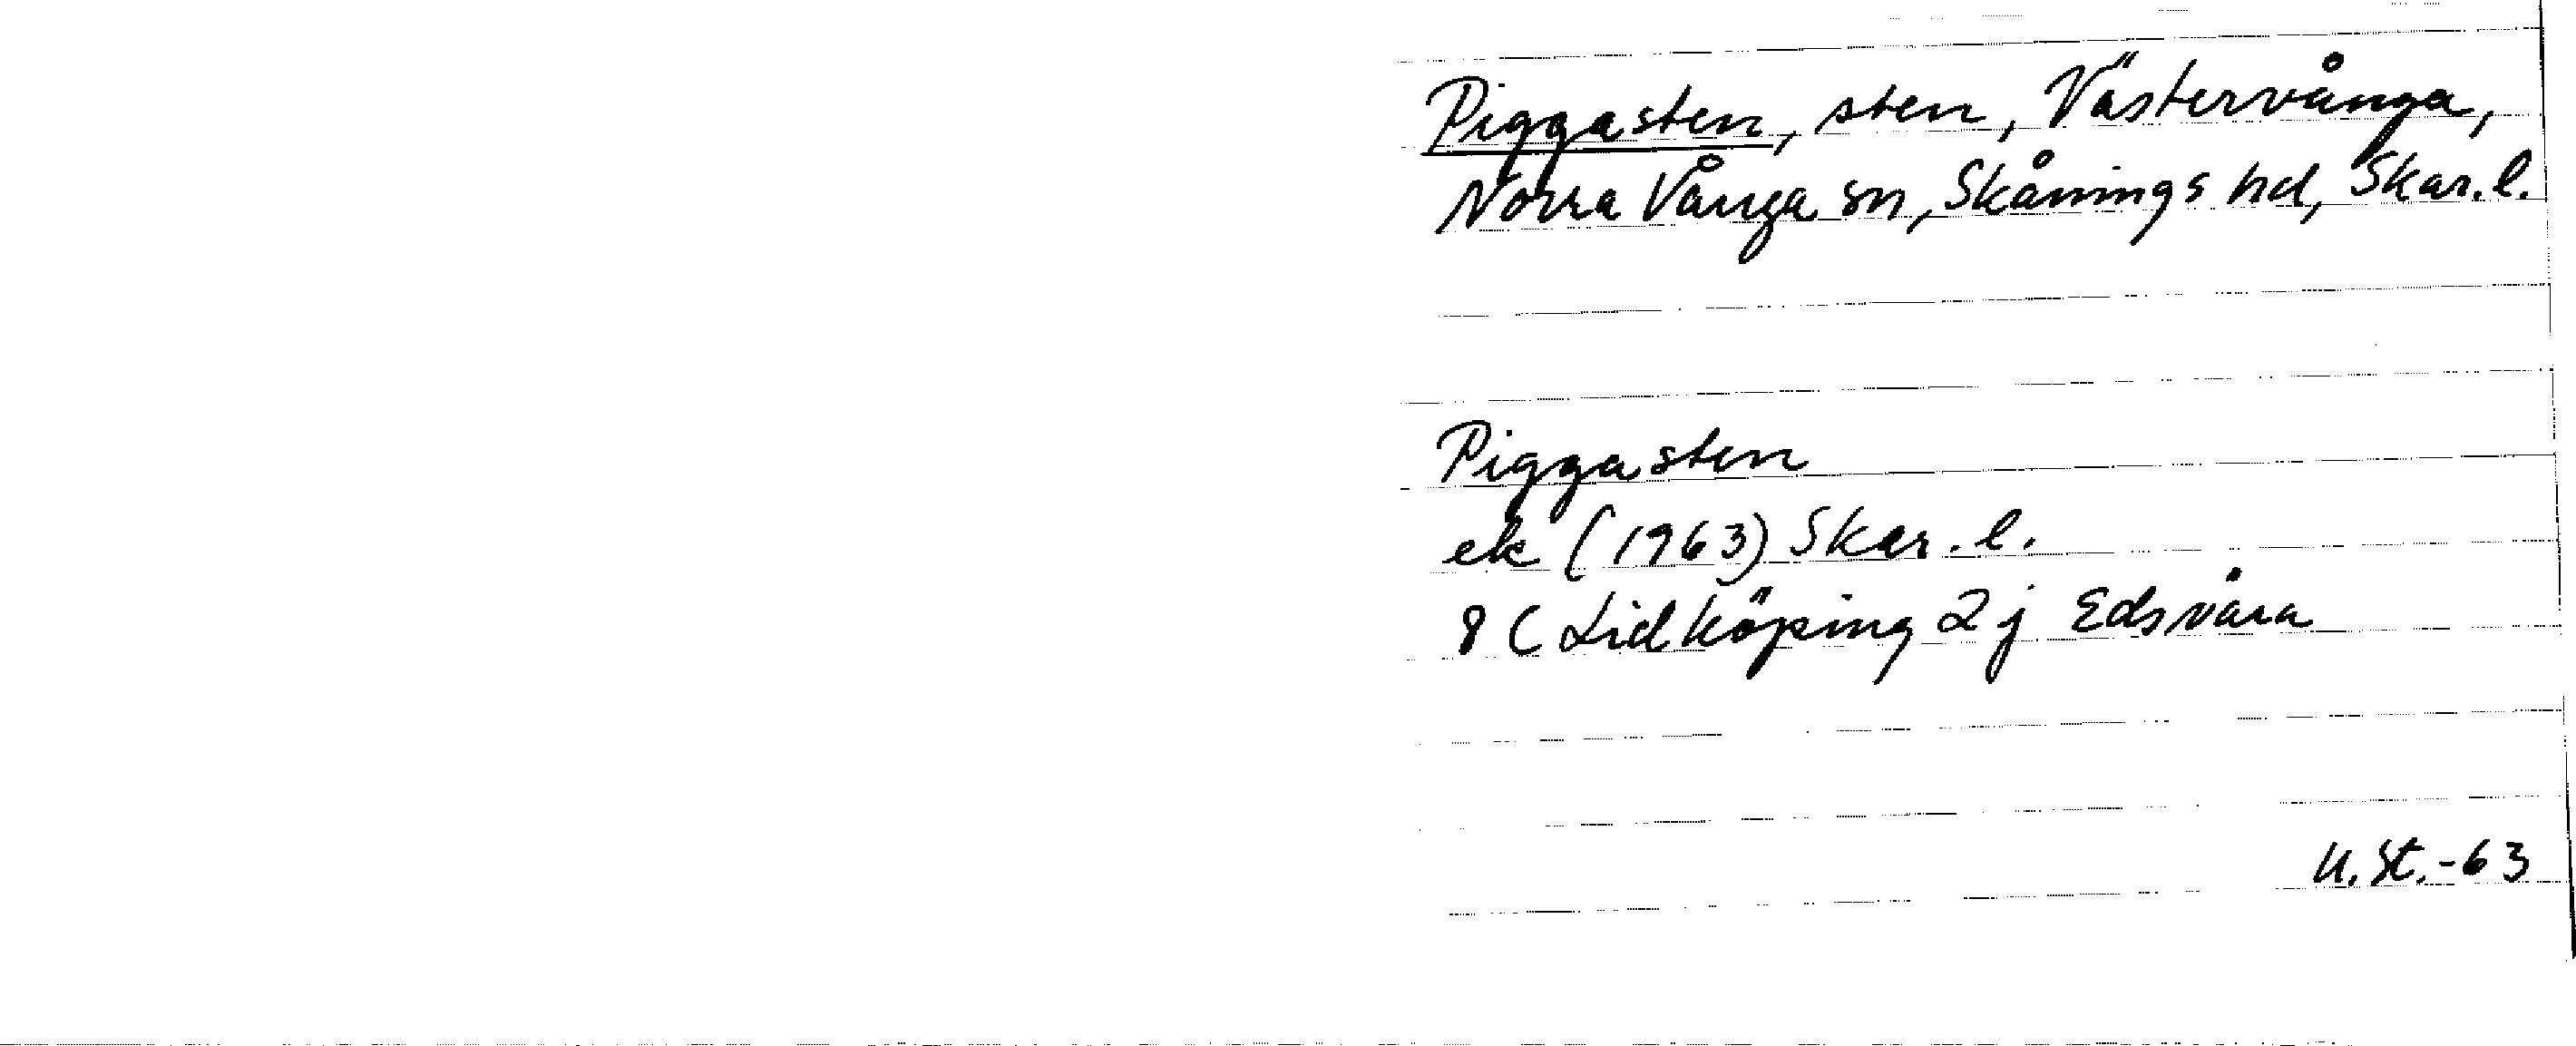 Piggasten, sten, Västervånga,
Norra Vånga sn, Skånings hd, Skar. l.
Piggasten
ek (1963) Skar. l.
8 C Lidköping 2 j Edsvåra
U. St. -63